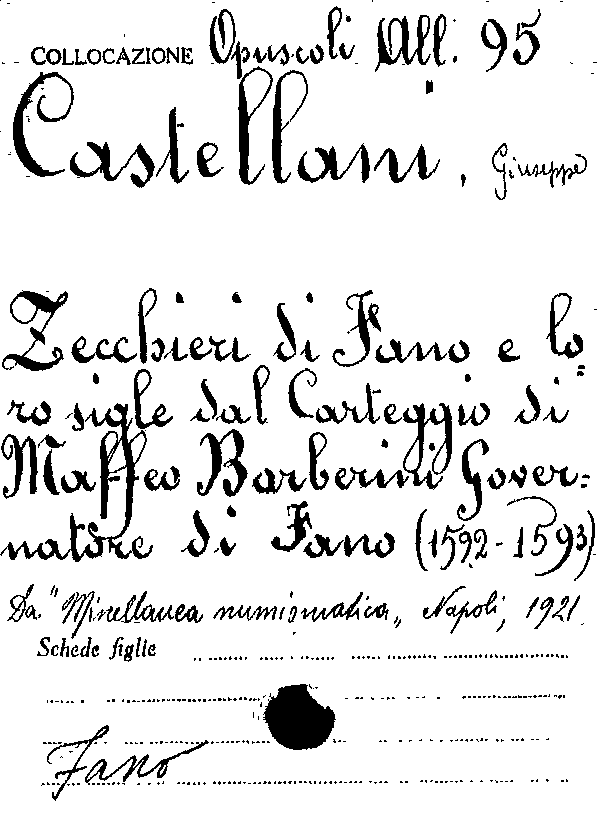 COLLOCAZIONE Opuscoli All. 95
Castellani, Giuseppe
Zecchieri di Fano e lo=
ro sigle dal Carteggio di
Maffeo Barberini Gover=
natore di Fano (1592-1593)
Da "Miscellanea numismatica„ Napoli, 1921
Schede figlie
Fano